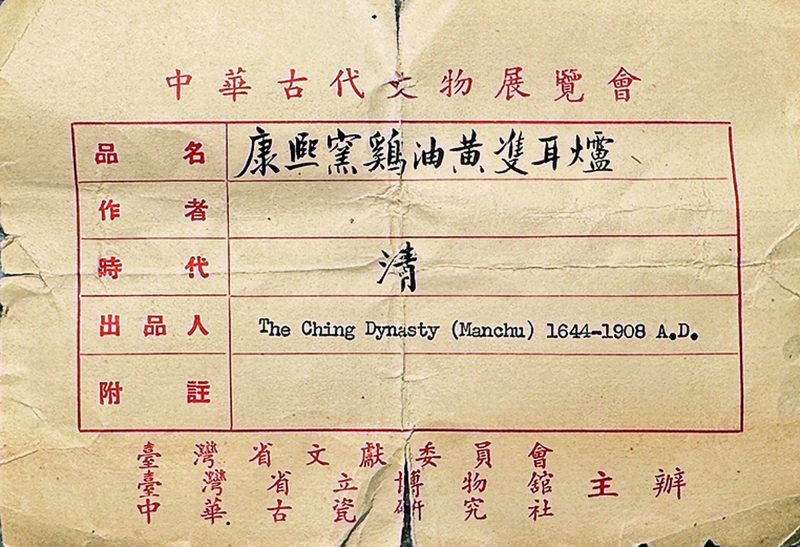 中華古代文物展覽會
品名 康熙窯鷄油黃雙耳爐
作者
時代 清
出品人 The Ching Dynasty (Manchu) 1644-1908 A.D.
附註
臺灣省文獻委員會
臺灣省立博物館 主辦
中華古瓷研究社